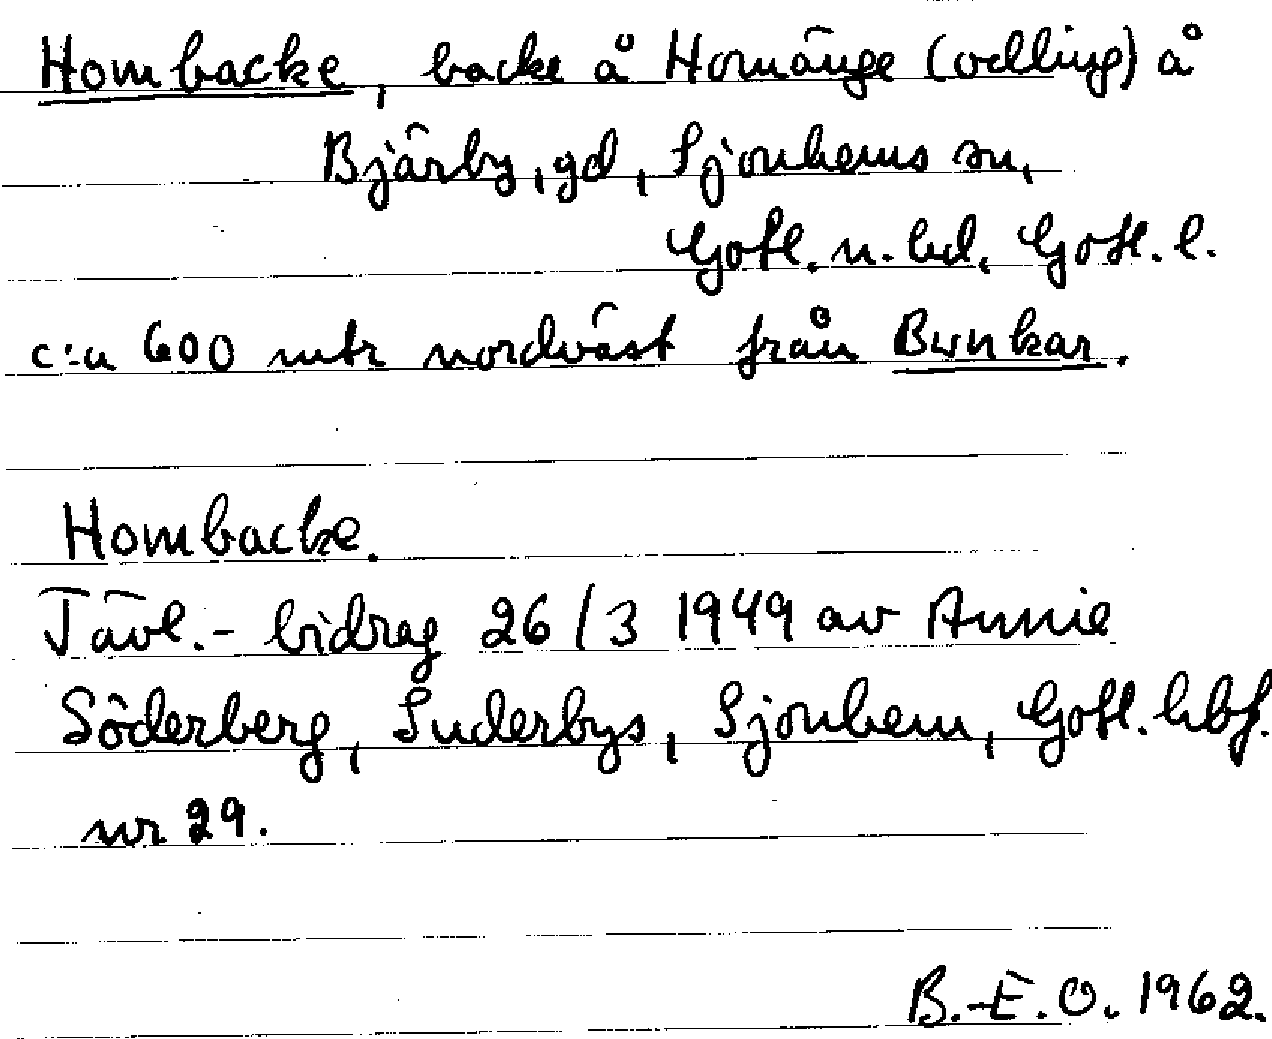 Hombacke, backe å Homänge (odling) å
Bjärby, gd, Sjonhems sn,
Gotl. n. hd, Gotl. l.
c:a 600 mtr nordväst från Bunkar.
Hombacke.
Tävl.- bidrag 26/3 1949 av Annie
Söderberg, Suderbys, Sjonhem, Gotl. hbf.
nr 29.
B.-E.O. 1962.